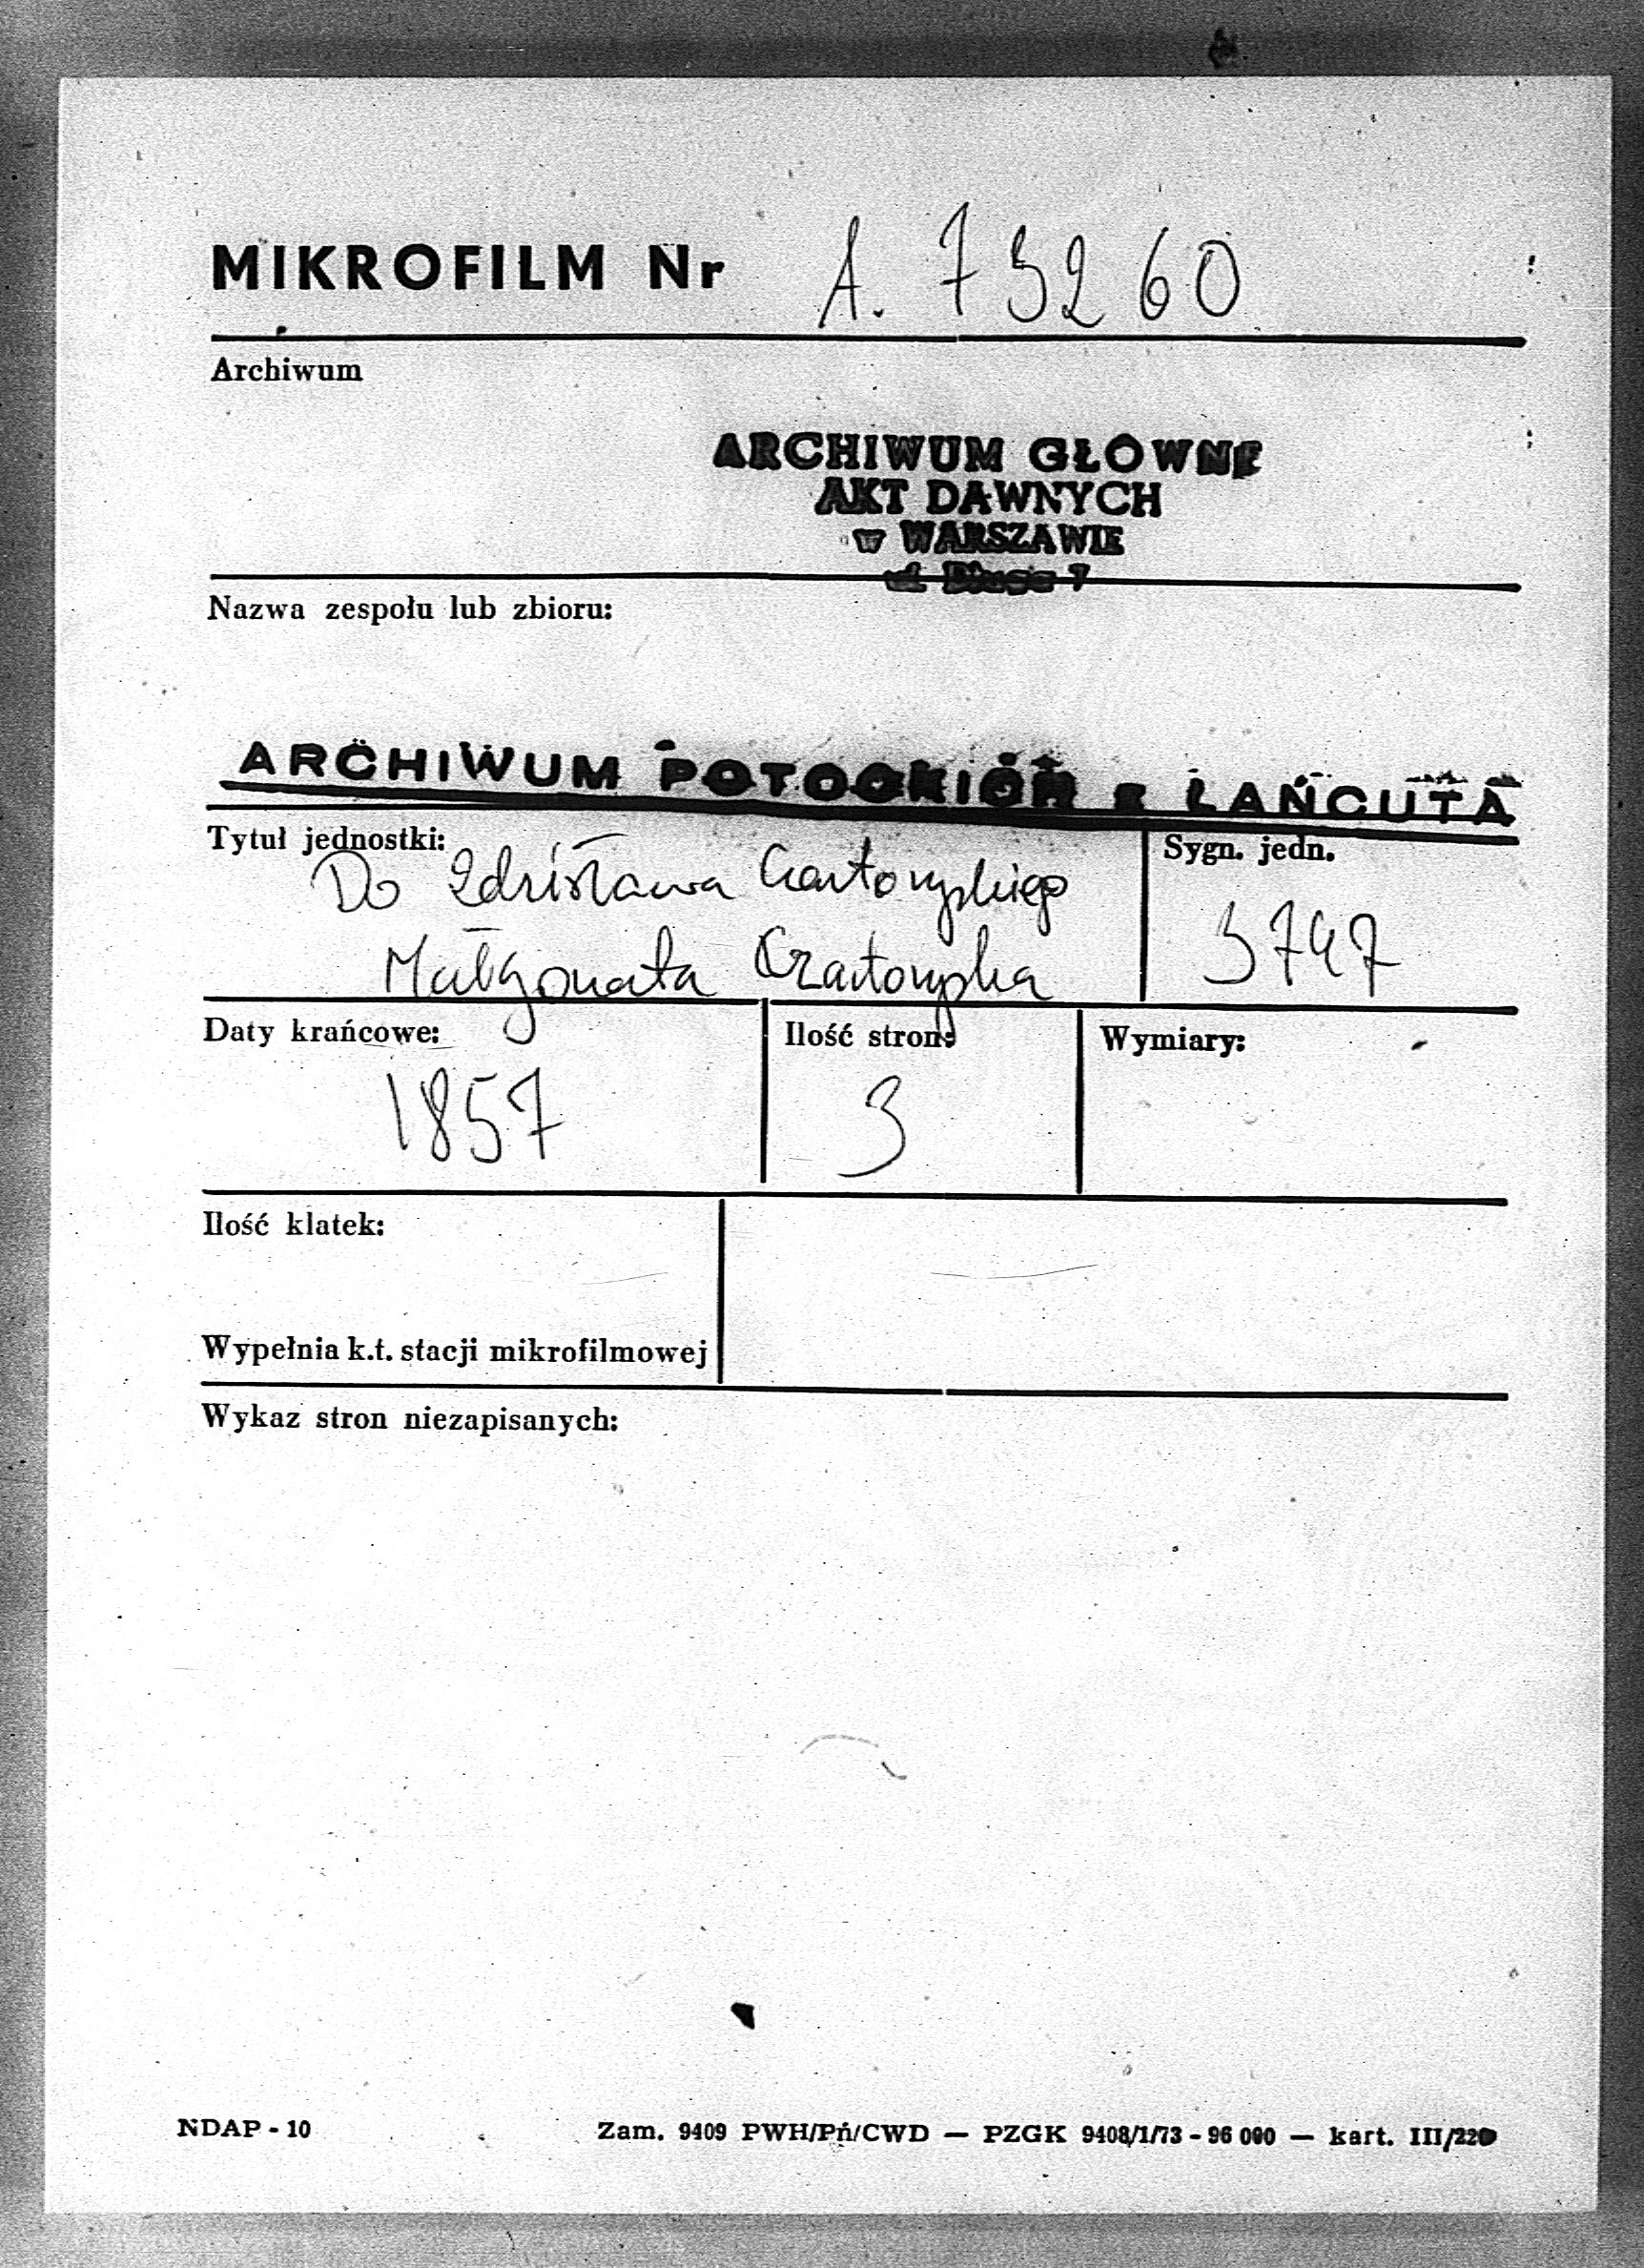 MIKROFILM Nr A. 73260
Archiwum
ARCHIWUM GŁÓWNE
AKT DAWNYCH
w WARSZAWIE
ul. Długa 7
Nazwa zespołu lub zbioru:
ARCHIWUM POTOCKICH z ŁAŃCUTA
Tytuł jednostki:
Sygn. jedn.
Do Zdzisława Czartoryskiego
Małgorzata Czartoryska
3747
Daty krańcowe:
Ilość stron:
Wymiary:
1857
3
Ilość klatek:
Wypełnia k.t. stacji mikrofilmowej
Wykaz stron niezapisanych:
NDAP - 10
Zam. 9409 PWH/Pń/CWD — PZGK 9408/1/73 - 96 000 — kart. III/220